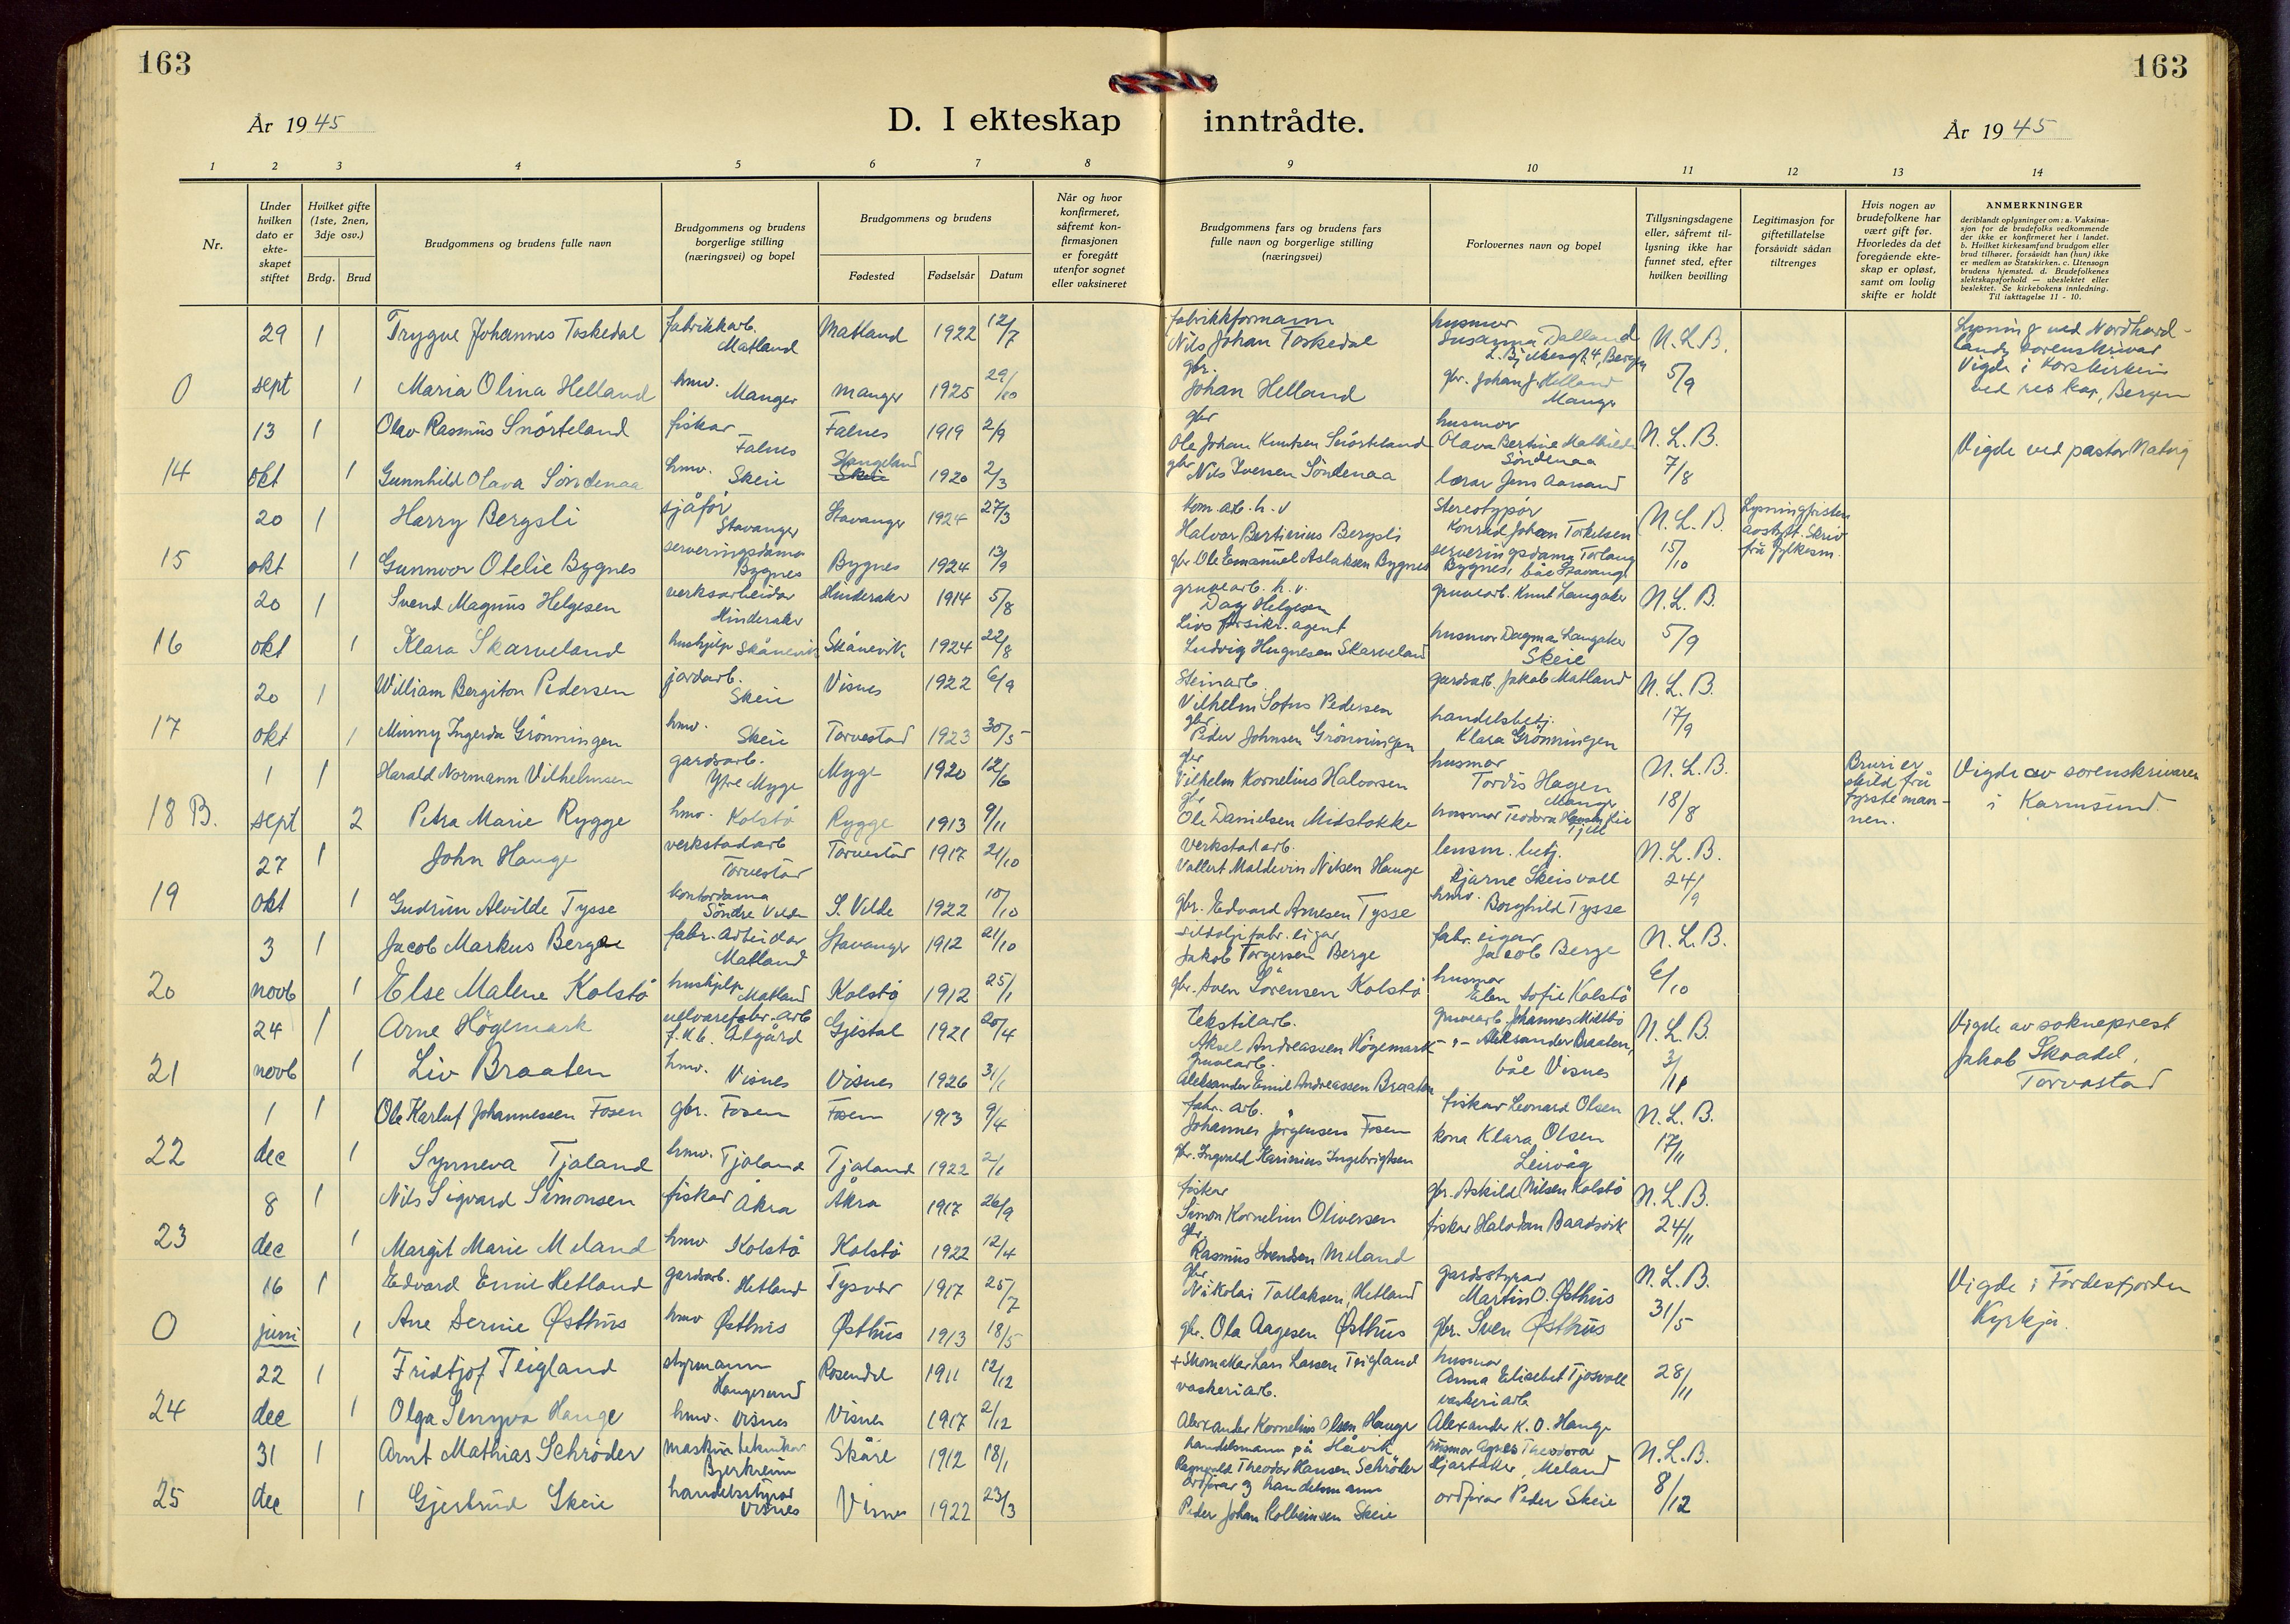 163
163
År 1945
D. I ekteskap inntrådte.
År 1945
1 2 3 4 5 6 7 8 9 10 11 12 13 14
Nr.
Under hvilken dato er ekte-skapet stiftet
Hvilket gifte (1ste, 2nen, 3dje osv.)
Brdg. Brud
Brudgommens og brudens fulle navn
Brudgommens og brudens borgerlige stilling (næringsvei) og bopel
Brudgommens og brudens
Fødested Fødselsår Datum
Når og hvor konfirmeret, såfremt kon-firmasjonen er foregått utenfor sognet eller vaksineret
Brudgommens fars og brudens fars fulle navn og borgerlige stilling (næringsvei)
Forlovernes navn og bopel
Tillysningsdagene eller, såfremt til-lysning ikke har funnet sted, efter hvilken bevilling
Legitimasjon for giftetillatelse forsåvidt sådan tiltrenges
Hvis nogen av brudefolkene har vært gift før. Hvorledes da det foregående ekte-skap er opløst, samt om lovlig skifte er holdt
ANMERKNINGER
deriblandt oplysninger om: a. Vaksina-sjon for de brudefolks vedkommende der ikke er konfirmeret her i landet. b. Hvilket kirkesamfund brudgom eller brud tilhører, forsåvidt han (hun) ikke er medlem av Statskirken. c. Utensogn brudens hjemsted. d. Brudefolkenes slektskapsforhold — ubeslektet eller beslektet. Se kirkebokens innledning. Til iakttagelse 11 - 10.
29 1 Trygve Johannes Toskedal fabrikkarb. Matland Matland 1922 12/7 fabrikkformann Nils Johan Toskedal husmor Susanna Dalland N.L.B. Lysning ved Nordhord-lands sorenskrivar
0 sept 1 Maria Olina Helland hmv. Manger Manger 1925 29/10 gbr. Johan Helland gbr. Johan J. Helland Manger 5/9 Vigde i Korskirken ved res kap, Bergen
13 1 Olav Rasmus Snörteland fiskar Falnes Falnes 1919 2/9 gbr Ole Johan Knutsen Snörteland husmor Olava Bertine Mathilde Söndenaa N.L.B. Vigde ved pastor Natvig
14 okt 1 Gunnhild Olava Söndenaa hmv. Skeie Stangeland Skeie 1920 2/3 gbr Nils Iversen Söndenaa lærar Jens Aarsand 7/8
20 1 Harry Bergsli sjåför Stavanger Stavanger 1924 27/3 kom.arb. h.v Halvor Bertinius Bergsli stereotypör Konrad Johan Torkelsen N.L.B. Lysningfristen avstytt. Skriv frå fylkesm.
15 okt 1 Gunnvor Otelie Bygnes serveringsdama Bygnes Bygnes 1924 13/9 gbr Ole Emanuel Aslaksen Bygnes serveringsdama Torlaug Bygnes, båe Stavanger 15/10
20 1 Svend Magnus Helgesen verksarbeidar Hinderaker Hinderaker 1914 5/8 gruvearb. h.v. Dag Helgesen gruvearb. Knut Langaker N.L.B.
16 okt 1 Klara Skarveland hushjelp Skånevik Skånevik 1924 22/8 Livsforsikr. agent Ludvig Hugnesen Skarveland husmor Dagmar Langaker Skeie 5/9
20 1 William Bergiton Pedersen jordarb. Skeie Visnes 1922 6/9 Steinarb. Vilhelm Sofus Pedersen gardsarb. Jakob Matland N.L.B.
17 okt 1 Minny Ingerda Grönningen hmv. Skeie Torvestad 1923 30/5 gbr Peder Johnsen Grönningen handelsbetj. Klara Grönningen 17/9
1 1 Harald Normann Vilhelmsen gardsarb. Ytre Myge Myge 1920 12/6 gbr Vilhelm Kornelius Halvorsen husmor Tordis Hagen Manger N.L.B. Bruri er skild frå fyrste man-nen. Vigde av sorenskrivaren i Karmsund.
18 B. sept 2 Petra Marie Rygge hmv. Kolstö Rygge 1913 9/11 gbr Ole Danielsen Midstokke husmor Teodora 18/8
27 1 John Hauge verkstadarb Torvestad Torvestad 1917 21/10 verkstadarb. Vallert Maldevin Nilsen Hauge lensm. betj. Bjarne Skeisvoll N.L.B.
19 okt 1 Gudrun Alvilde Tysse kontordama Söndre Velde S. Velde 1922 10/10 gbr. Edvard Arnesen Tysse hmv. Borghild Tysse 24/9
3 1 Jacob Markus Berge fabr. arbeidar Matland Stavanger 1912 21/10 sildoljefabr. eigar Jakob Torgersen Berge fabr. eigar Jacob Berge N.L.B.
20 novb 1 Else Malene Kolstö hushjelp Matland Kolstö 1912 25/1 gbr. Sven Sörensen Kolstö husmor Elen Sofie Kolstö 6/10
24 1 Arne Högemark ullvarefabr. arb f.k.b. Ålgård Gjestal 1921 20/4 tekstilarb. Aksel Andreassen Högemark gruvearb. Johannes Miltbö N.L.B. Vigde av sokneprest Jakob Skaadel, Torvastad
21 novb 1 Liv Braaten hmv. Visnes Visnes 1926 31/1 gruvearb. Aleksander Emil Andreassen Braaten -"- Aleksander Braaten, båe Visnes 3/11
1 1 Ole Karluf Johannessen Fosen gbr. Fosen Fosen 1913 9/4 fabr. arb. Johannes Jörgensen Fosen fiskar Leonard Olsen N.L.B.
22 dec 1 Synneva Tjoland hmv. Tjoland Tjoland 1922 2/1 gbr. Ingvald Karinius Ingebrigtsen kona Klara Olsen Leirvåg 17/11
8 1 Nils Sigvard Simonsen fiskar Åkra Åkra 1917 26/9 fiskar Simon Kornelius Oliversen gbr. Askild Nilsen Kolstö N.L.B.
23 dec 1 Margit Marie Meland hmv Kolstö Kolstö 1922 12/4 gbr. Rasmus Svendsen Meland fiskar Halvdan Baadsvik 24/11
16 1 Edvard Emil Hetland gardsarb. Hetland Tysvær 1917 25/7 gbr Nikolai Tollaksen Hetland gardsstyrar Martin O. Østhus N.L.B. Vigde i Fördesfjorden Kyrkja.
0 juni 1 Ane Serine Østhus hmv Østhus Østhus 1913 18/5 gbr. Ola Aagesen Østhus gbr. Sven Østhus 31/5
22 1 Fridtjof Teigland styrmann Haugesund Rosendal 1911 12/12 + Skomakar Lars Larsen Teigland husmor Anna Elisabet Tjosvoll 28/11
24 dec 1 Olga Hauge hmv. Visnes Visnes 1917 2/12 vaskeriarb. Alexander Kornelius Olsen Hauge vaskeriarb Alexander K. O. Hauge
31 1 Arnt Mathias Schröder maskintekniker Bjerkreim Skåre 1912 18/1 handelsmann på Håvik Ragnvald Theodor Hansen Schröder husmor Agnes Theodora Hjartaker, Meland N.L.B.
25 dec 1 Gjertrud Skeie handelsstyrar Visnes Visnes 1922 23/3 ordförar og handelsmann Peder Johan Kolbeinsen Skeie ordförar Peder Skeie 8/12